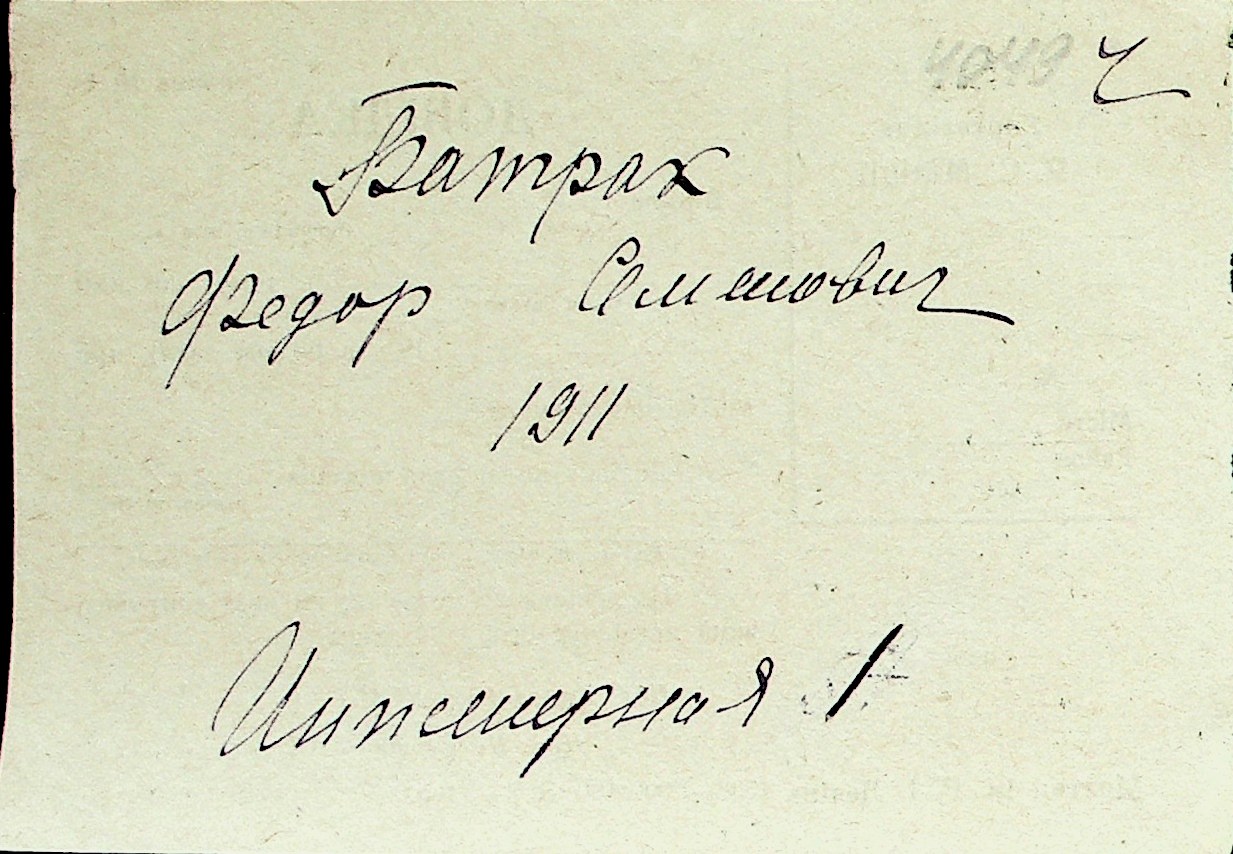 4049 ч
Батрак
Федор Семенович
1911
Инженерная 1